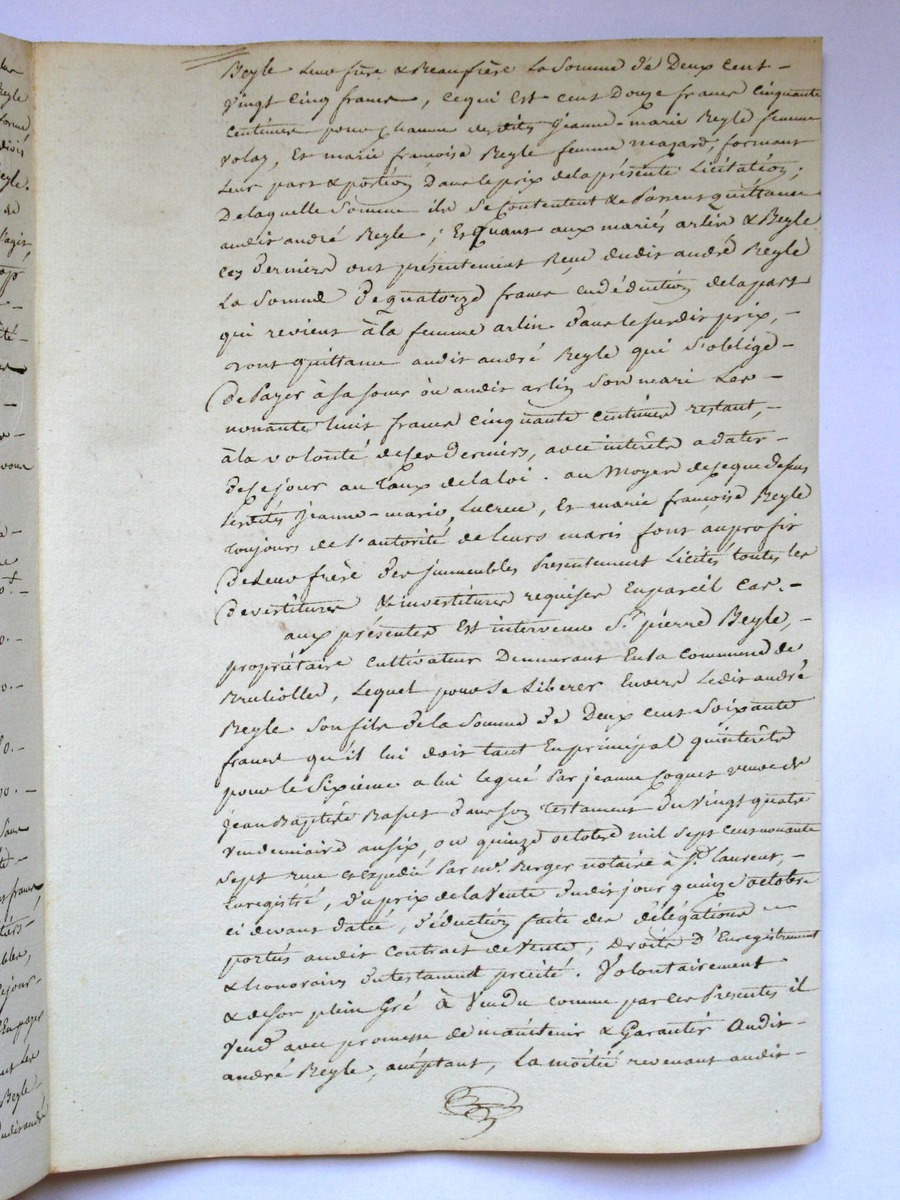 Beyle leur frère & Beaufrère la somme de Deux cent -
vingt cinq francs, ce qui est cent Douze francs cinquante
centimes pour chacune desdites jeanne-marie Beyle femme
volay, et marie françoise Beyle femme mazard; formant
leur part & portion dans le prix de la présente Licitation;
De laquelle somme ils se contentent & passent quittance
audit andré Beyle; Et Quant aux mariés arlin & Beyle
ces Derniers ont présentement Reçu dudit andré Beyle
La somme de quatorze francs en déduction de la part
qui revient à la femme arlin dans le susdit prix, -
dont quittance audit andré Beyle qui s'oblige -
De Payer à sa sœur ou audit arlin son mari Les -
nonante huit francs cinquante centimes restant, -
à la volonté de ces Derniers, avec intérêts a dater -
de ce jour au Taux de la loi. au Moyen de ce que dessus
lesdites jeanne-marie, Lucrece, et marie françoise Beyle
toujours de l'autorité de leurs maris font au profit
De leur frère des jmmeubles Présentement Licités toutes les
Devestitures & investitures requises en pareil cas. -
aux présentes est intervenu Sr. pierre Beyle, -
propriétaire cultivateur Demeurant En la commune de
Bruliolles, Lequel pour se Liberer Envers Ledit andré
Beyle son fils de la somme de Deux cent soixante
francs qu'il lui doit tant En principal qu'intérêts
pour le sixième a lui legué par jeanne Coquet veuve de
jean Baptiste Basset dans son testament du vingt quatre
vendemiaire an six, ou quinze octobre mil sept cent nonante
sept reçu et expedié par me. Berger notaire à St. laurent, -
Enregistré, du prix de la Vente dudit jour quinze octobre
ci devant datée, déduction faite des délégations -
portées audit contract de Vente; Droits d'Enregistrement
& honoraires du testament précité. Volontairement
& de son plein Gré à Vendu comme par ces Presentes il
Vend avec promesse de maintenir & Garantir Audit -
andré Beyle, acceptant, la moitié revenant audit -